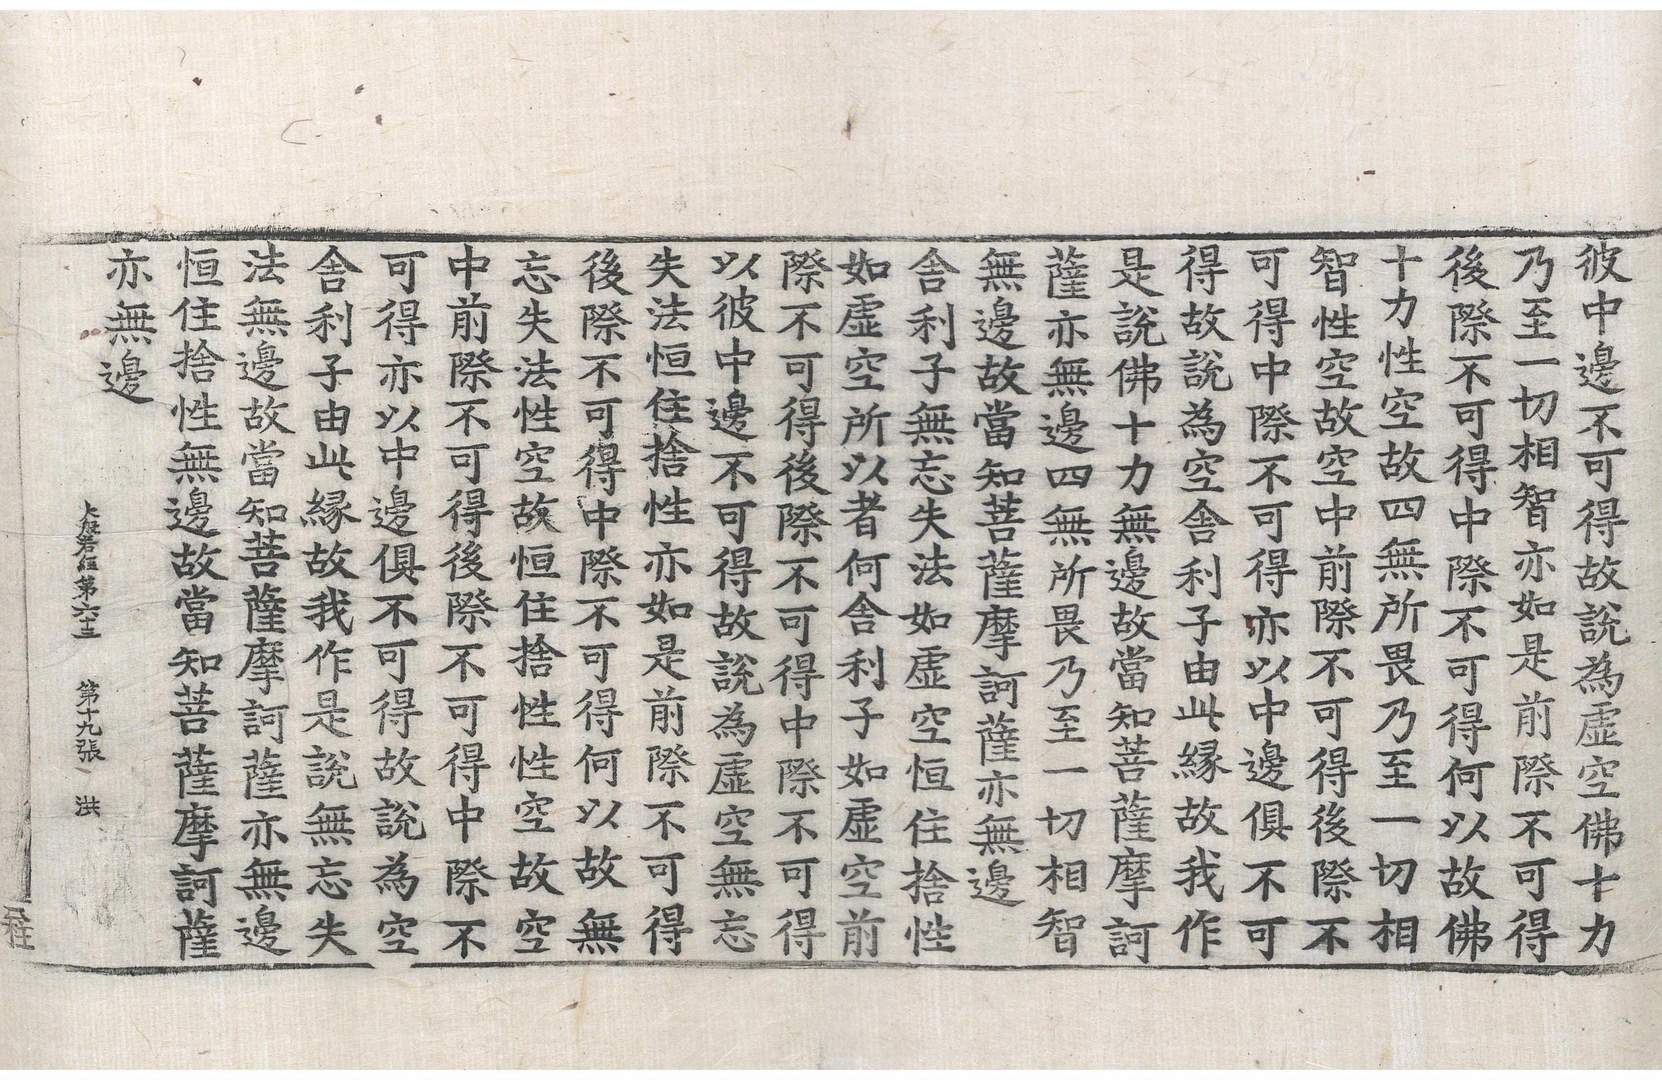 彼中邊不可得故說為虛空佛十力
乃至一切相智亦如是前際不可得
後際不可得中際不可得何以故佛
十力性空故四無所畏乃至一切相
智性空故空中前際不可得後際不
可得中際不可得亦以中邊俱不可
得故說為空舍利子由此緣故我作
是說佛十力無邊故當知菩薩摩訶
薩亦無邊四無所畏乃至一切相智
無邊故當知菩薩摩訶薩亦無邊
舍利子無忘失法如虛空恒住捨性
如虛空所以者何舍利子如虛空前
際不可得後際不可得中際不可得
以彼中邊不可得故說為虛空無忘
失法恒住捨性亦如是前際不可得
後際不可得中際不可得何以故無
忘失法性空故恒住捨性性空故空
中前際不可得後際不可得中際不
可得亦以中邊俱不可得故說為空
舍利子由此緣故我作是說無忘失
法無邊故當知菩薩摩訶薩亦無邊
恒住捨性無邊故當知菩薩摩訶薩
亦無邊
大般若經第六十三 第十九張 洪